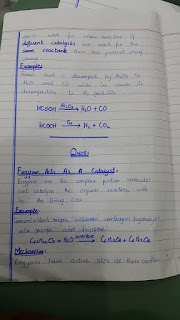 work for more reaction. If
different catalysts are used for the
same reactant then the product may
Example:
Formic acid is decomposed by Al₂O₃ to
H₂O and CO while Cu causes its
decomposition to H₂ and CO₂
HCOOH Al₂O₃→ H₂O + CO
HCOOH Cu→ H₂ + CO₂
Enzyme Acts As A Catalyst:
Enzyme are the complex protein molecules
and catalyze the organic reactions with
in the living cell
Example:
Concentrated sugar undergoes hydrolysis
into glucose and fructose
C₁₂H₂₂O₁₁ + H₂O invertase→ C₆H₁₂O₆ + C₆H₁₂O₆
Mechanism:
Enzymes have active sites at their surface